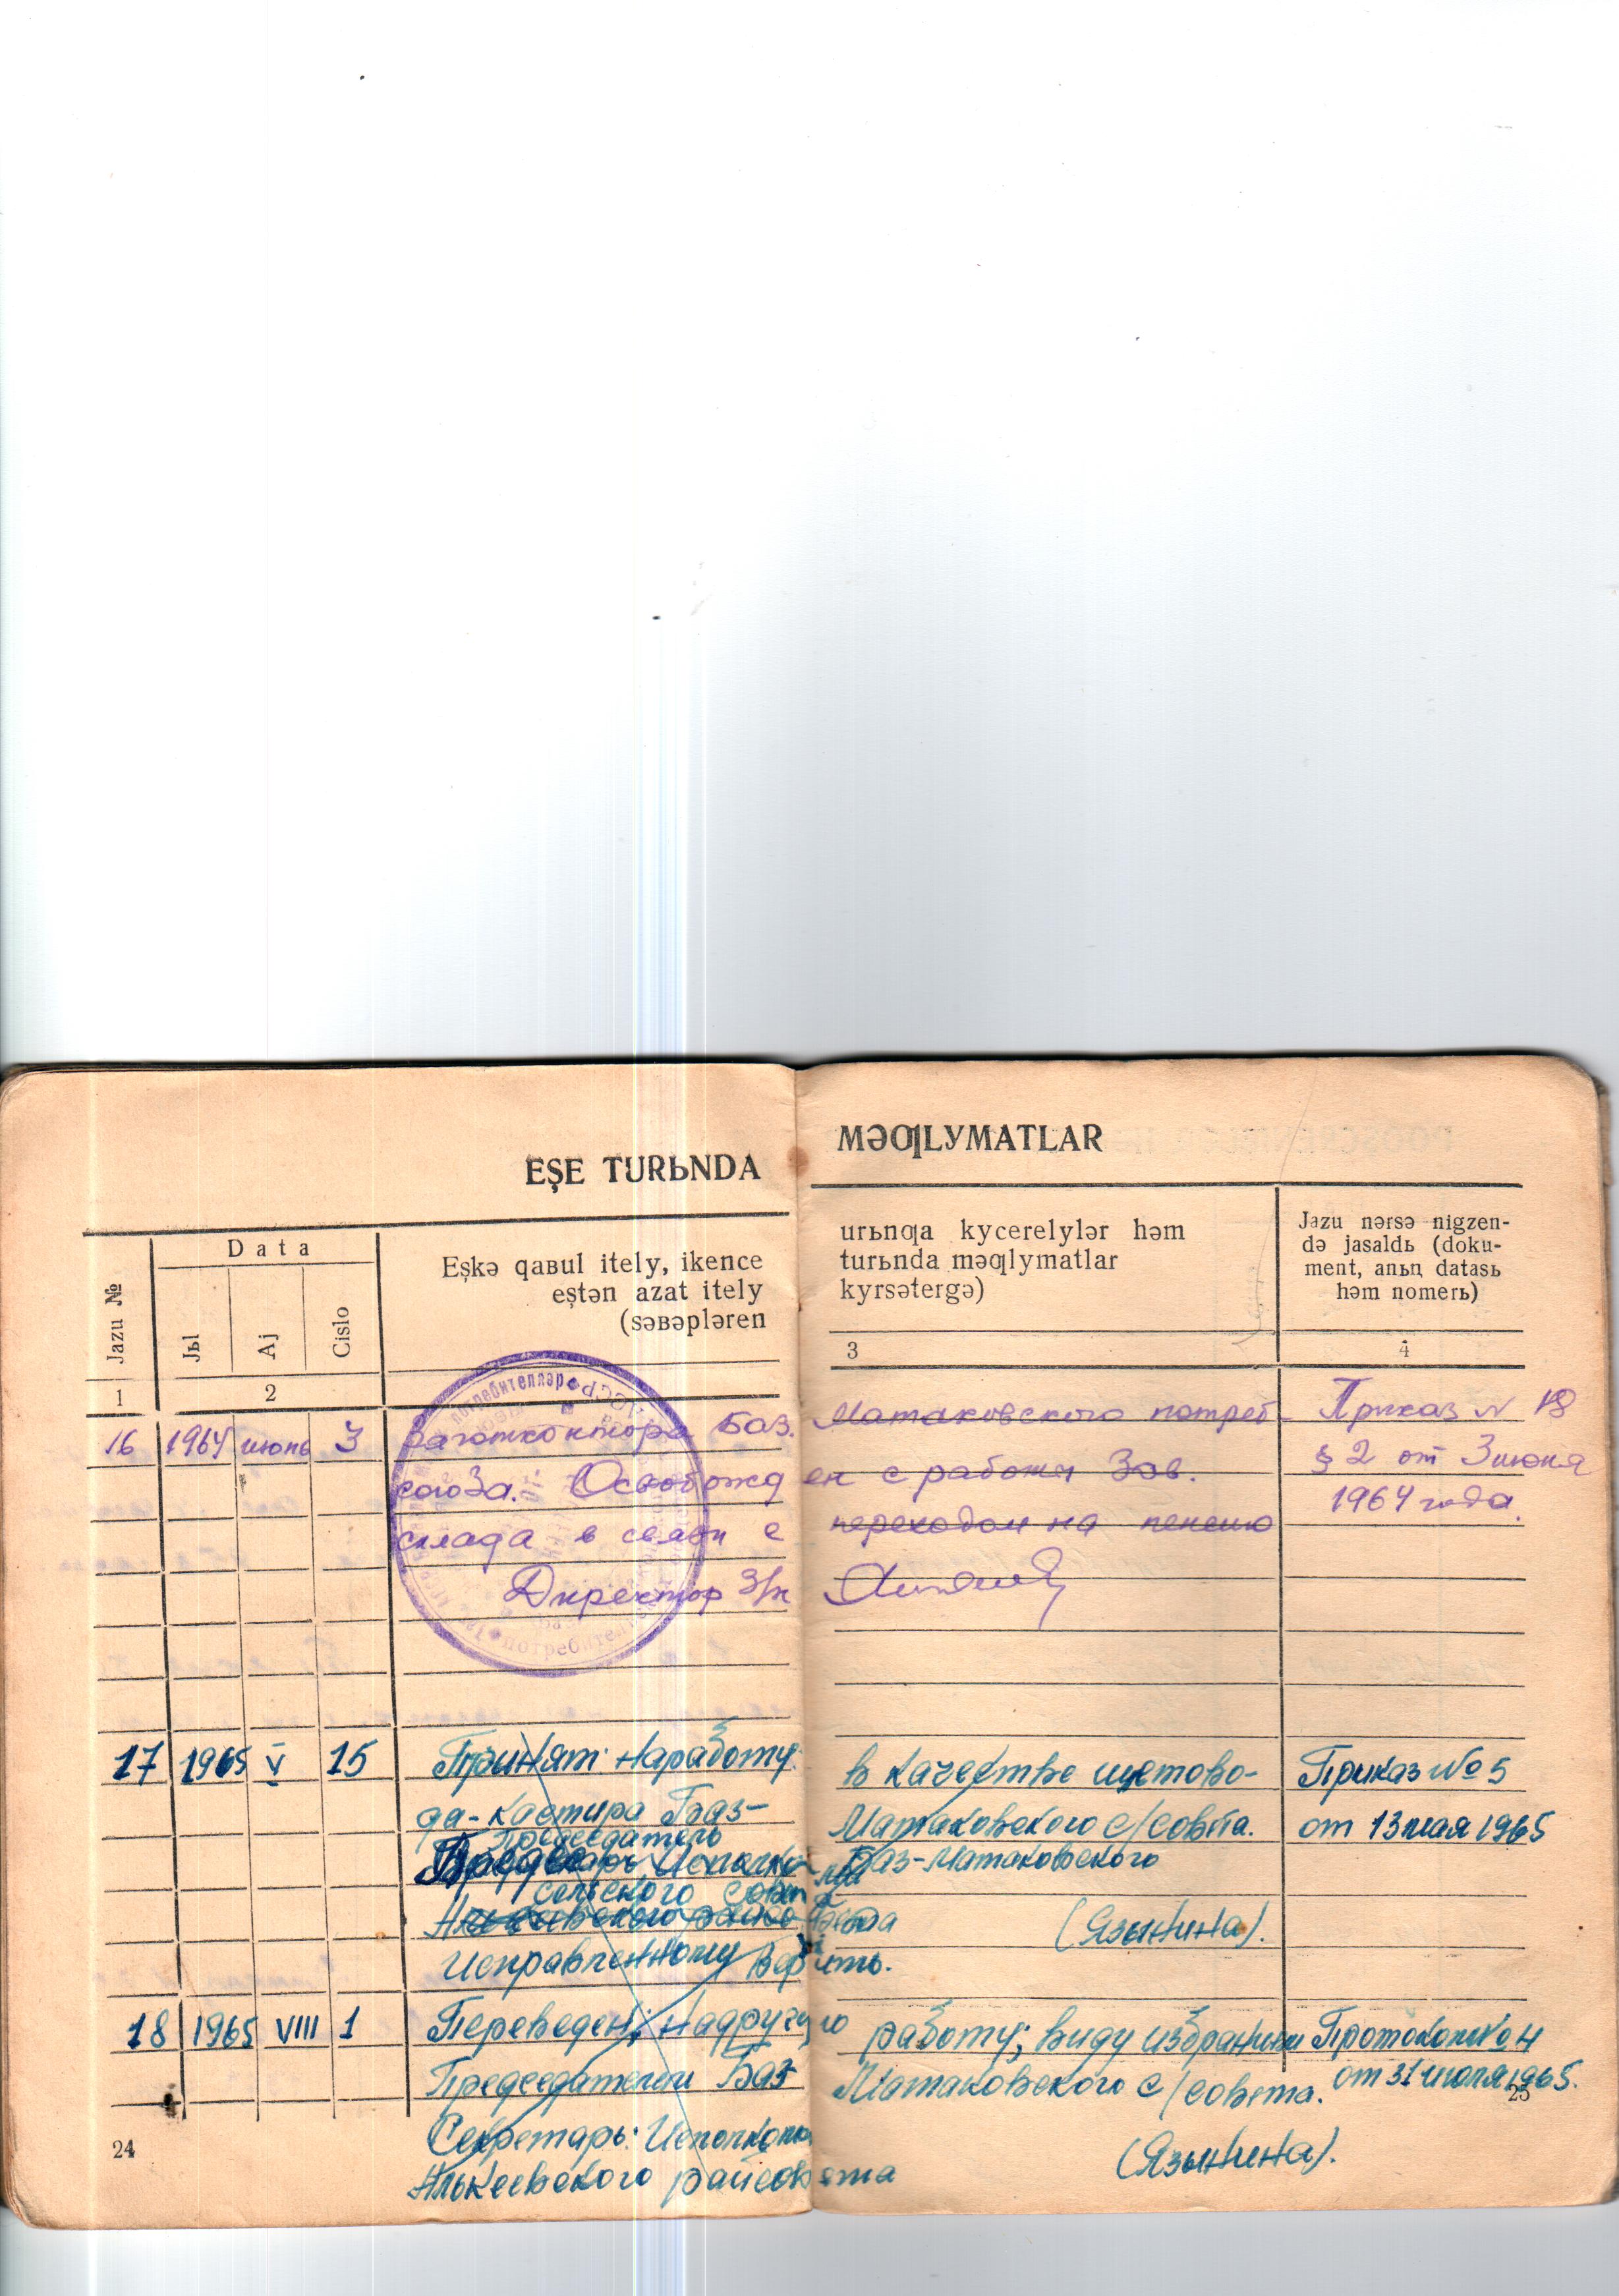 EŞE TURЬNDA MƏƢLYMATLAR
Jazu №
Data
Jьl
Aj
Cislo
Eşkə qaвul itely, ikence urьnƣa kycerelylər həm
eştən azat itely turьnda məƣlymatlar
(səвəpləren kyrsətergə)
Jazu nərsə nigzen-
də jasaldь (doku-
ment, anьꞑ datasь
həm nomerь)
1 2 3 4
16 1964 июнь 3 Заготконтора Баз. Матаковского потреб Приказ N 18
союза. Освобожден с работы Зав. § 2 от 3 июня
склада в связи с переходом на пенсию 1964 года.
Директор З/к
потребителләр
17 1965 V 15 Принят на работу в качестве щетово- Приказ № 5
да-кассира Баз- Матаковского с/совета. от 13 мая 1965
Председатель
Исполкома Баз-Матаковского
сельского совета
(Языкина).
Исправленному верить.
18 1965 VIII 1 Переведен на другую работу; виду избранием Протокол № 4
Председателем Баз Матаковского с/совета. от 31 июля 1965.
25
24
Секретарь: Исполкома (Языкина).
Алькеевского райсовета